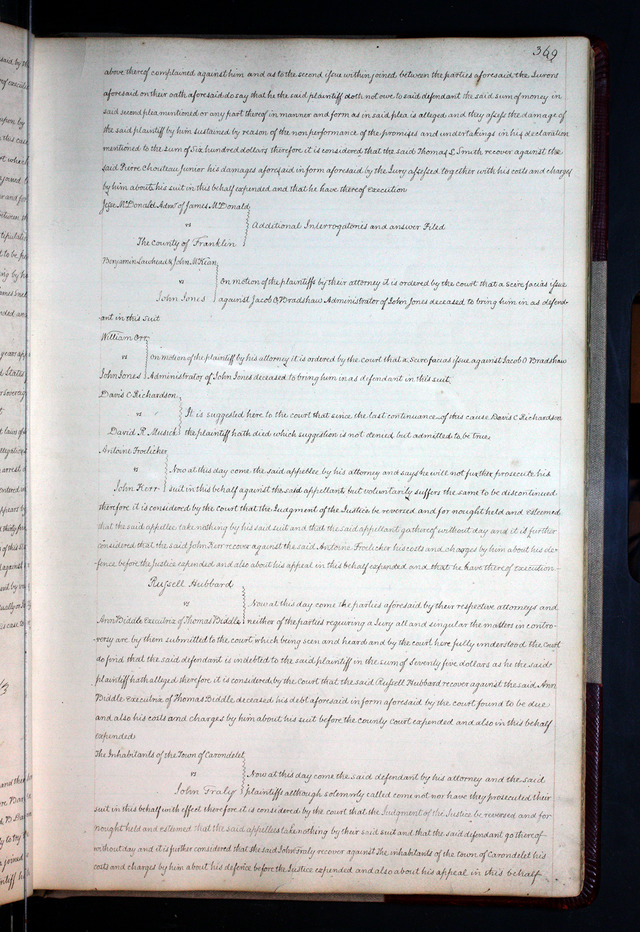 369
above thereof complained against him and as to the second issue within joined between the parties aforesaid the Jurors
aforesaid on their oath aforesaid do say that he the said plaintiff doth not owe to said defendant the said sum of money in
said second plea mentioned or any part thereof in manner and form as in said plea is alleged and they assess the damage of
the said plaintiff by him sustained by reason of the non performance of the promises and undertakings in his declaration
mentioned to the sum of Six hundred dollars therefore it is considered that the said Thomas L Smith recover against the
said Pierre Chouteau Junior his damages aforesaid in form aforesaid by the Jury assessed together with his costs and charges
by him about his suit in this behalf expended and that he have thereof execution
Jesse McDonald Admr of James McDonald
vs Additional Interrogatories and answer Filed
The County of Franklin
Benjamin Lawhead & John McKean
vs On motion of the plaintiffs by their attorney it is ordered by the court that a Scire facias issue
John Jones against Jacob O Bradshaw Administrator of John Jones deceased to bring him in as defend-
ant in this suit
William Orr
vs On motion of the plaintiff by his attorney it is ordered by the court that a Scire facias issue against Jacob O Bradshaw
John Jones Administrator of John Jones deceased to bring him in as defendant in this suit
Davis C Richardson
vs It is suggested here to the court that since the last continuance of this cause Davis C Richardson
David R. Musick the plaintiff hath died which suggestion is not denied but admitted to be true
Antoine Froelicker
vs Now at this day come the said appellee by his attorney and says he will not further prosecute his
John Kerr suit in this behalf against the said appellant but voluntarily suffers the same to be discontinued
therefore it is considered by the court that the Judgment of the Justice be reversed and for nought held and esteemed
that the said appellee take nothing by his said suit and that the said appellant go thereof without day and it is further
considered that the said John Kerr recover against the said Antoine Froelicker his costs and charges by him about his de-
fence before the Justice expended and also about his appeal in this behalf expended and that he have thereof execution
Russell Hubbard
vs Now at this day come the parties aforesaid by their respective attorneys and
Ann Biddle Executrix of Thomas Biddle neither of the parties requiring a Jury all and singular the matters in contro-
versy are by them submitted to the court which being seen and heard and by the court here fully understood the Court
do find that the said defendant is indebted to the said plaintiff in the sum of Seventy five dollars as he the said
plaintiff hath alleged therefore it is considered by the Court that the said Russell Hubbard recover against the said Ann
Biddle Executrix of Thomas Biddle deceased his debt aforesaid in form aforesaid by the court found to be due
and also his costs and charges by him about his suit before the county Court expended and also in this behalf
expended
The Inhabitants of the Town of Carondelet
vs Now at this day come the said defendant by his attorney and the said
John Fraly plaintiffs although solemnly called come not nor have they prosecuted their
suit in this behalf with effect therefore it is considered by the court that the Judgment of the Justice be reversed and for
nought held and esteemed that the said appellees take nothing by their said suit and that the said defendant go thereof
without day and it is further considered that the said John Fraly recover against The inhabitants of the town of Carondelet his
costs and charges by him about his defence before the Justice expended and also about his appeal in this behalf